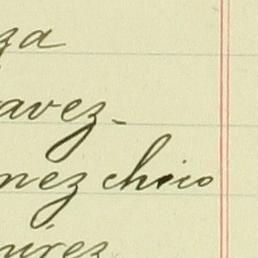 za
avez-
nez chico
mirez